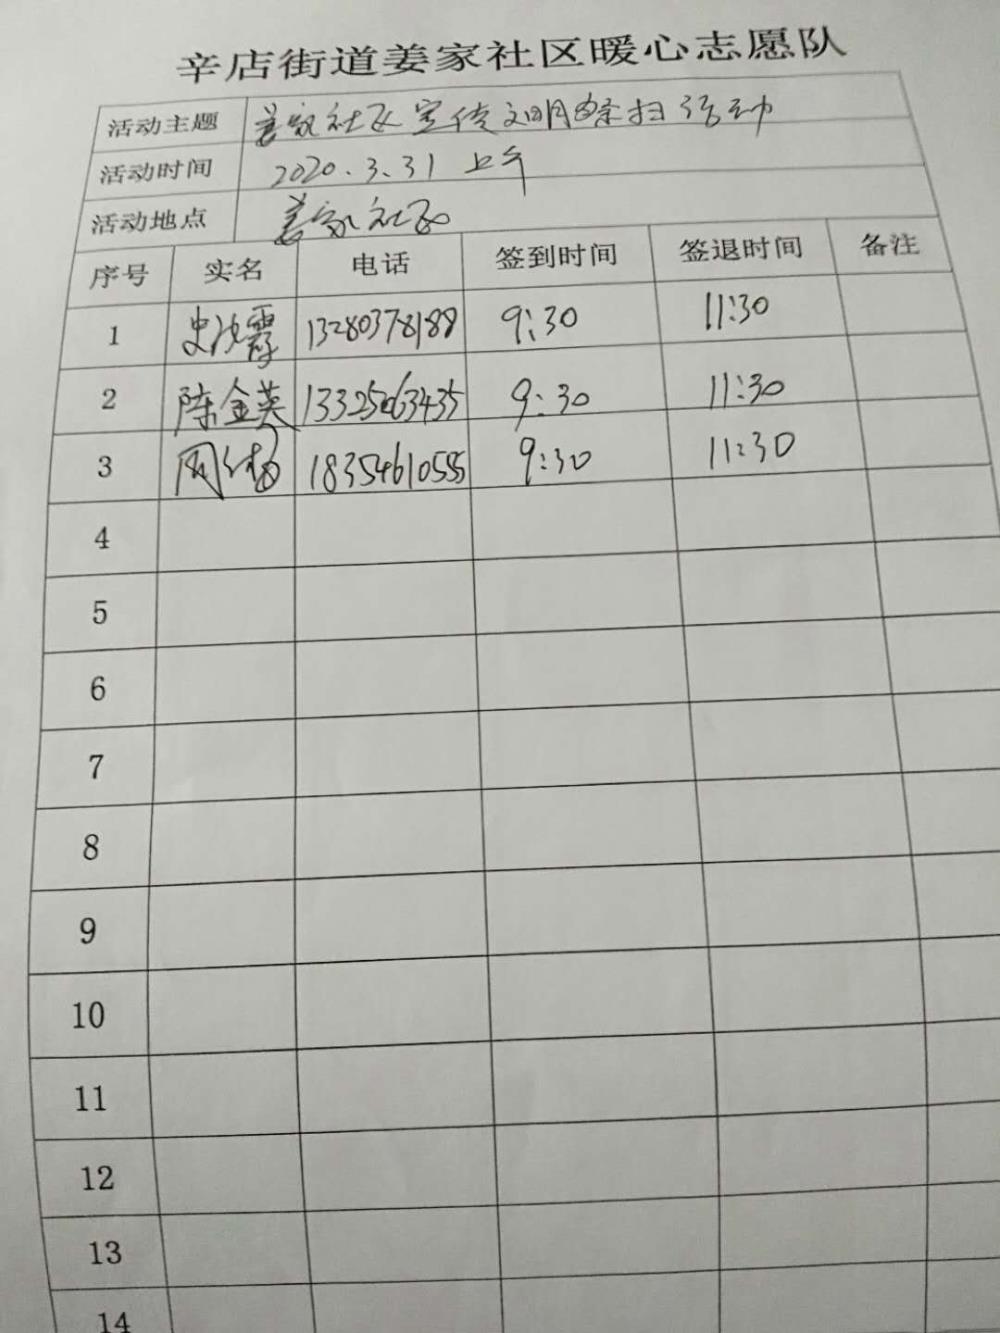 辛店街道姜家社区暖心志愿队
活动主题 姜家社区宣传文明祭扫活动
活动时间 2020.3.31 上午
活动地点 姜家社区
序号 实名 电话 签到时间 签退时间 备注
1 史 霞 13280378188 9:30 11:30
2 陈金英 13325063435 9:30 11:30
3 周 杨 18354610555 9:30 11:30
4
5
6
7
8
9
10
11
12
13
14